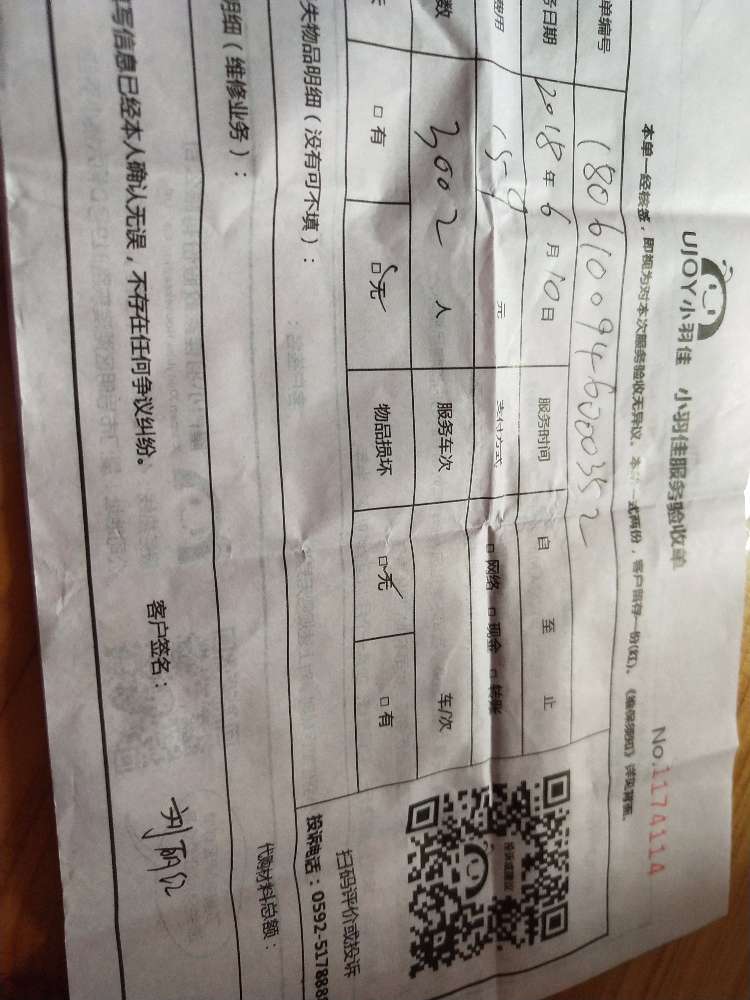 UJOY小羽佳 小羽佳服务验收单
No.1174114
本单一经核签，即视为对本次服务验收无异议。本单一式两份，客户留存一份(红)。《维保须知》详见背面。
单编号 180610094620035２
务日期 2018年6月10日 服务时间 自 至 止
费用 159 元 支付方式 □网络 □现金 □转账
数 3002 人 服务车次 车/次
□有 □无 物品损坏 □无 □有
投诉或建议
扫码评价或投诉
投诉电话：0592-517888
失物品明细（没有可不填）：
明细（维修业务）：
代购材料总额：
写信息已经本人确认无误，不存在任何争议纠纷。 客户签名：